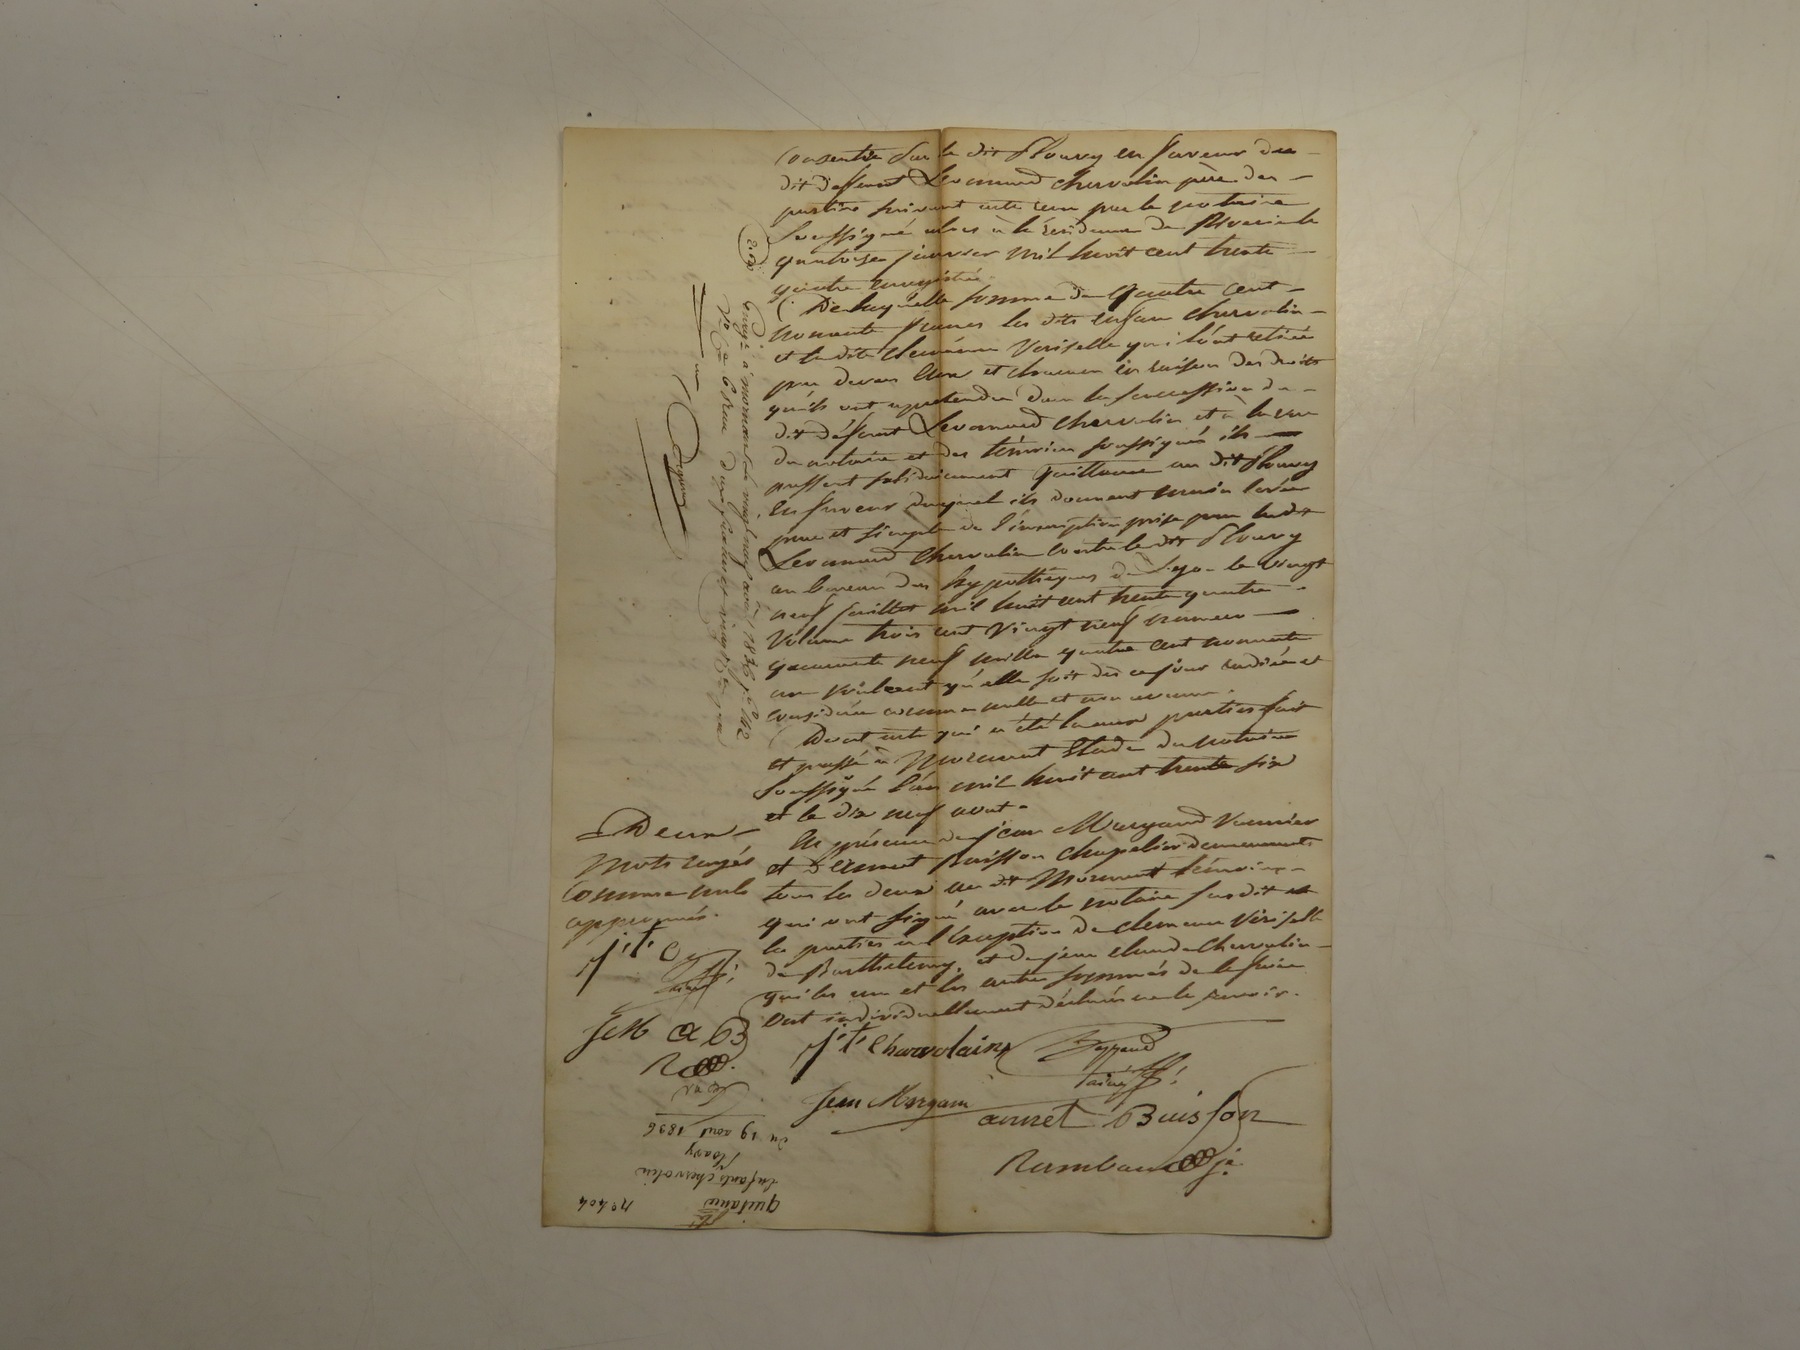 Consentie par le dit Flouvy en faveur du
dit deffunt Leonnard Chervolin père des
parties suivant acte reçu par le notaire
soussigné alors à la résidence de Riverie le
quatorze janvier mil huit cent trente
quatre enregistré.
De laquelle somme de quatre cent
nonante francs les dits enfans Chervolin
et la dite Clemence Veriselle qui l'ont retirée
par devers eux et chacun en raison des droits
qu'ils ont a pretendre dans la succession du
dit défunt Leonnard Chervolin et à la vue
du notaire et des témoins soussignés ils
passent solidairement quittance au dit Flouvy
en faveur duquel ils donnent main levée
pure et simple de l'inscription prise par le dit
Leonnard Chervolin contre le dit Flouvy
au bureau des hypothèques de Lyon le vingt
neuf juillet mil huit cent trente quatre
Volume trois cent vingt neuf numero
quarante neuf mille quatre cent nonante
un voulant qu'elle soit des ce jour radiée et
considérée comme nulle et non avenue.
Dont acte qui a été lu aux parties fait
et passé à Mornant Etude du notaire
soussigné l'an mil huit cent trente six
et le dix neuf aout.
En présence de jean Margand
et d'Annet Buisson chapelier demeurants
tous les deux au dit Mornant témoins
qui ont signé avec le notaire susdit et
les parties a l'exception de Clemence Veriselle
de Barthelemy, et de jean claude Chervolin
qui les uns et les autres sommés de le faire
ont individuellement déclarés ne le savoir.
Deux
mots rayés
comme nuls
approuvés.
JM a B
j.t. Chervolain
Jean Margam
annet Buisson
Rambau je
Enregé à mornant le vingt neuf août 1836 f° 142
du 19 aout 1836
Flouvy
Enfants chervolin
quitance
n° 404